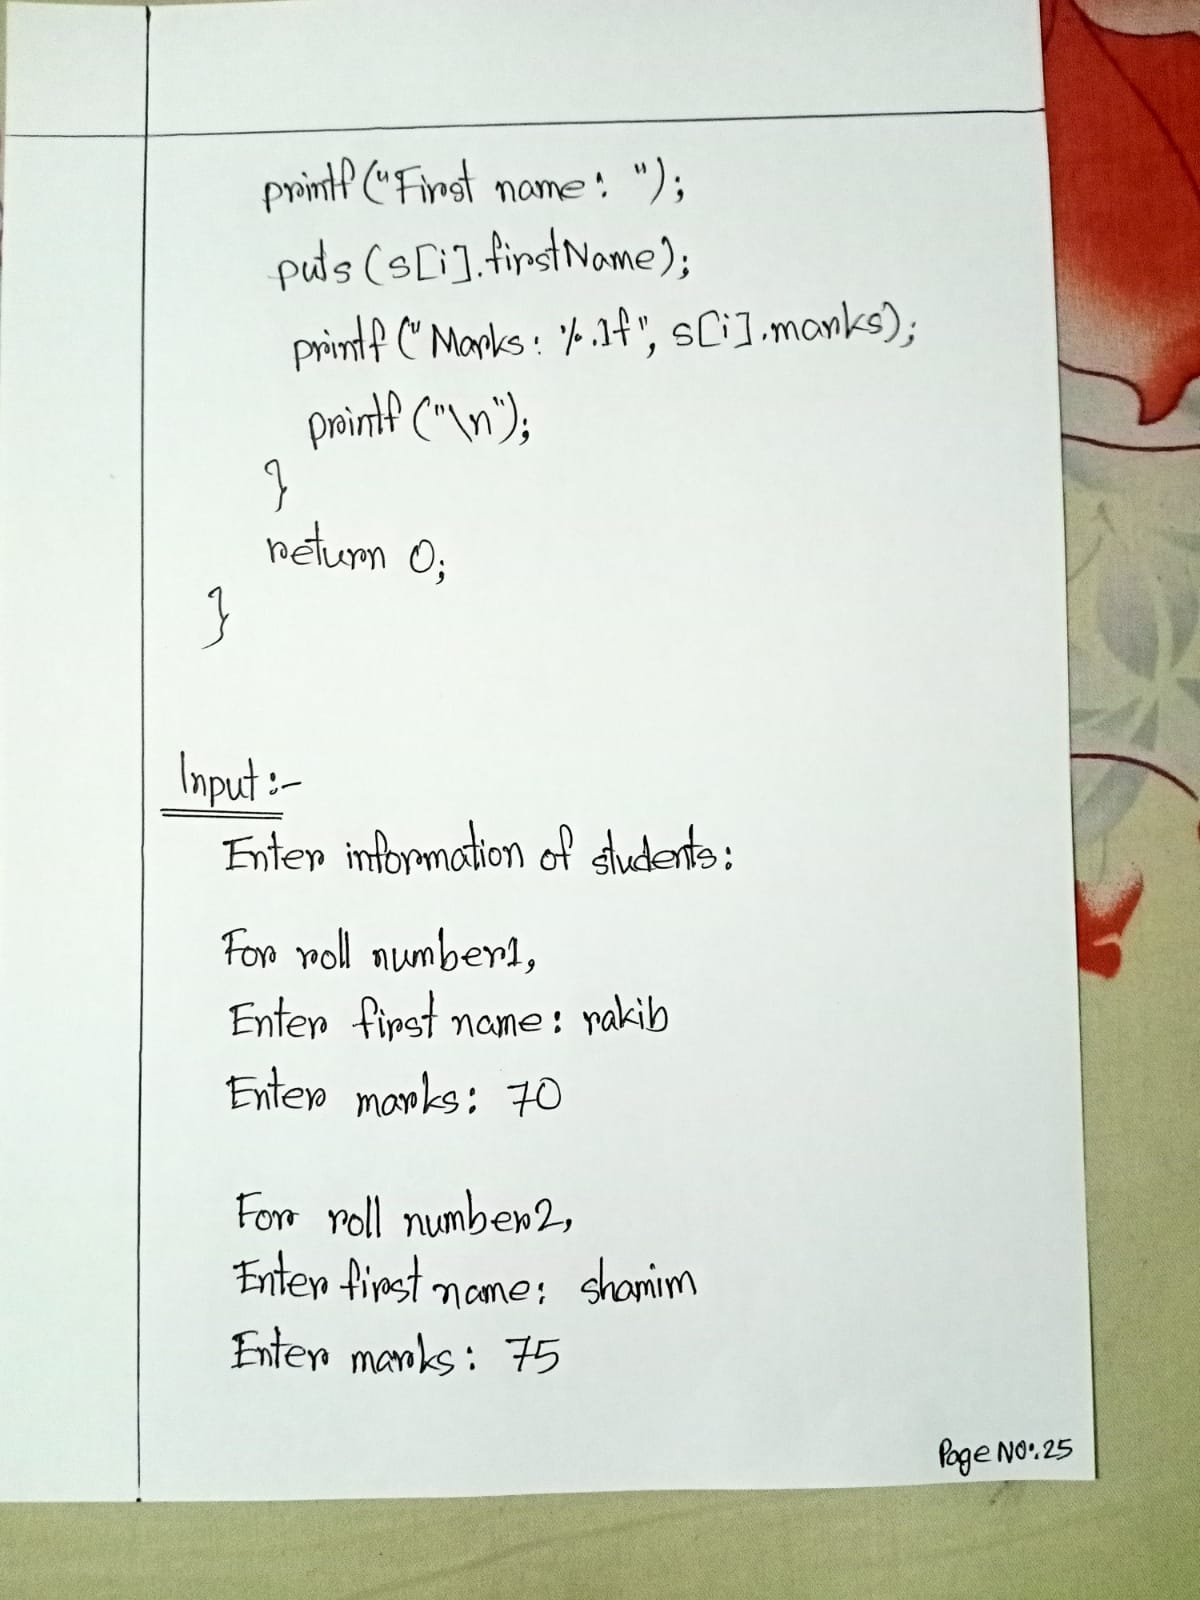 printf("First name: ");
puts(s[i].firstName);
printf("Marks: %.1f", s[i].marks);
printf("\n");
}
return 0;
}
Input :-
Enter information of students:
For roll number1,
Enter first name: rakib
Enter marks: 70
For roll number2,
Enter first name: shamim
Enter marks: 75
Page NO:. 25